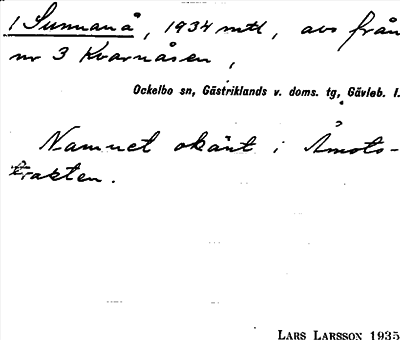 1 Sunnanå, 1934 mtl, avs från
nr 3 Kvarnåsen,
Ockelbo sn, Gästriklands v. doms. tg, Gävleb. l.
Namnet okänt i Åmots-
trakten.
LARS LARSSON 1935